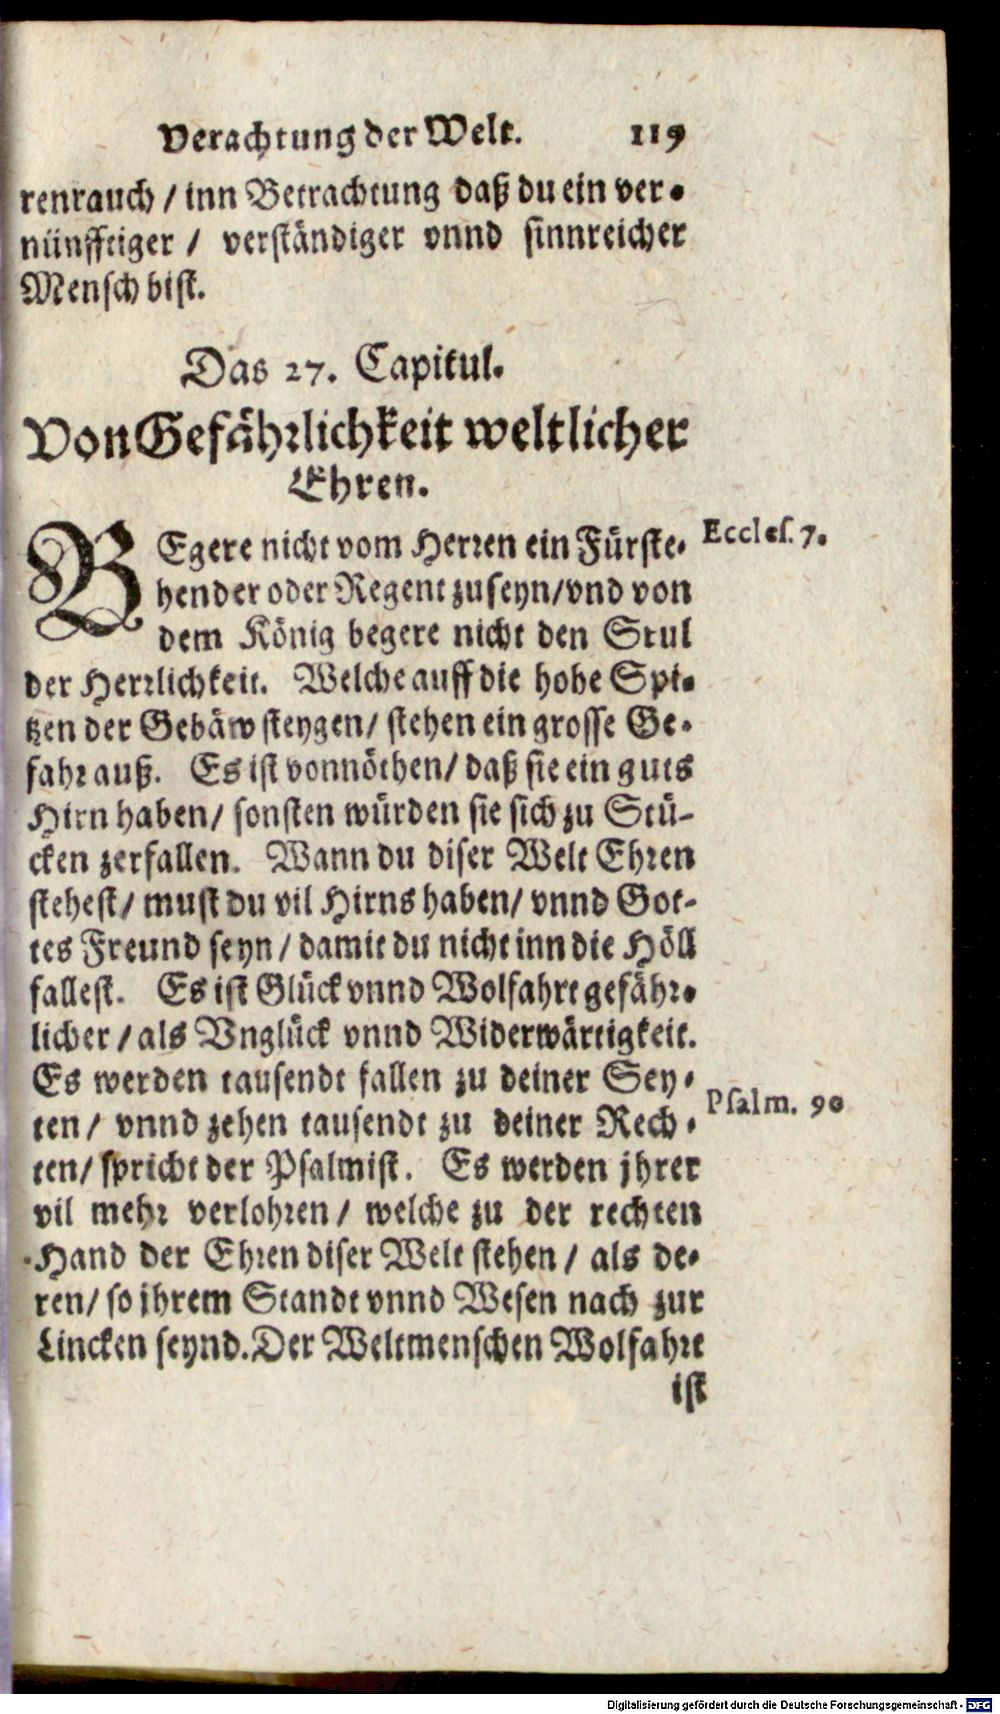 Verachtung der Welt. 119
renrauch / inn Betrachtung daß du ein ver-
nünfftiger / verständiger vnnd sinnreicher
Mensch bist.
Das 27. Capitul.
Von Gefährlichkeit weltlicher
Ehren.
BEgere nicht vom Herren ein Fürste-
hender oder Regent zu seyn/ vnd von
dem König begere nicht den Stul
der Herrlichkeit. Welche auff die hohe Spi-
tzen der Gebäw steygen/ stehen ein grosse Ge-
fahr auß. Es ist vonnöthen/ daß sie ein guts
Hirn haben/ sonsten würden sie sich zu Stü-
cken zerfallen. Wann du diser Welt Ehren
stehest/ must du vil Hirns haben/ vnnd Got-
tes Freund seyn / damit du nicht inn die Höll
fallest. Es ist Glück vnnd Wolfahrt gefähr-
licher / als Vnglück vnnd Widerwärtigkeit.
Es werden tausendt fallen zu deiner Sey-
ten / vnnd zehen tausendt zu deiner Rech-
ten/ spricht der Psalmist. Es werden jhrer
vil mehr verlohren / welche zu der rechten
Hand der Ehren diser Welt stehen / als de-
ren/ so jhrem Standt vnnd Wesen nach zur
Lincken seynd. Der Weltmenschen Wolfahrt
ist
Eccles. 7.
Psalm. 90
Digitalisierung gefördert durch die Deutsche Forschungsgemeinschaft - DFG